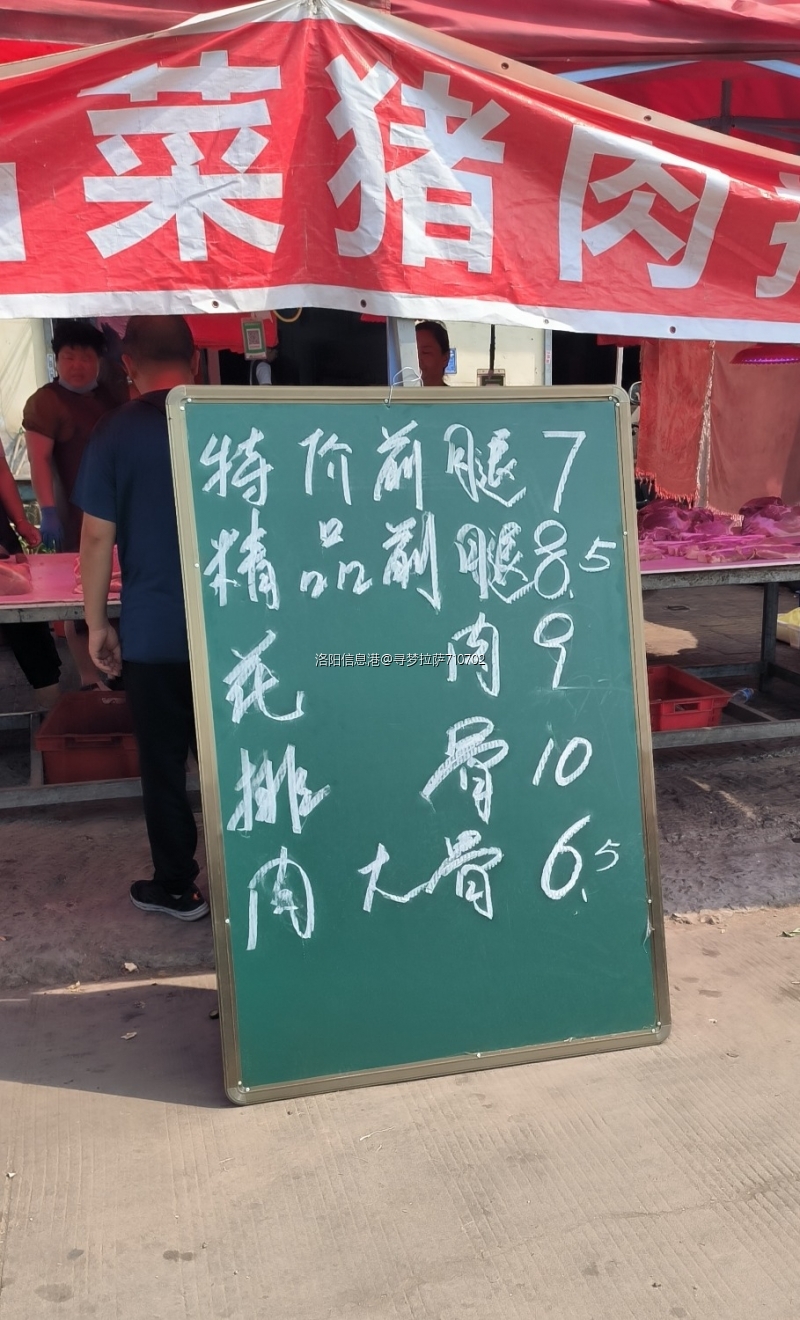 菜猪肉
特价前腿 7
精品前腿 8.5
花肉 9
洛阳信息港@寻梦拉萨710702
排骨 10
肉大骨 6.5